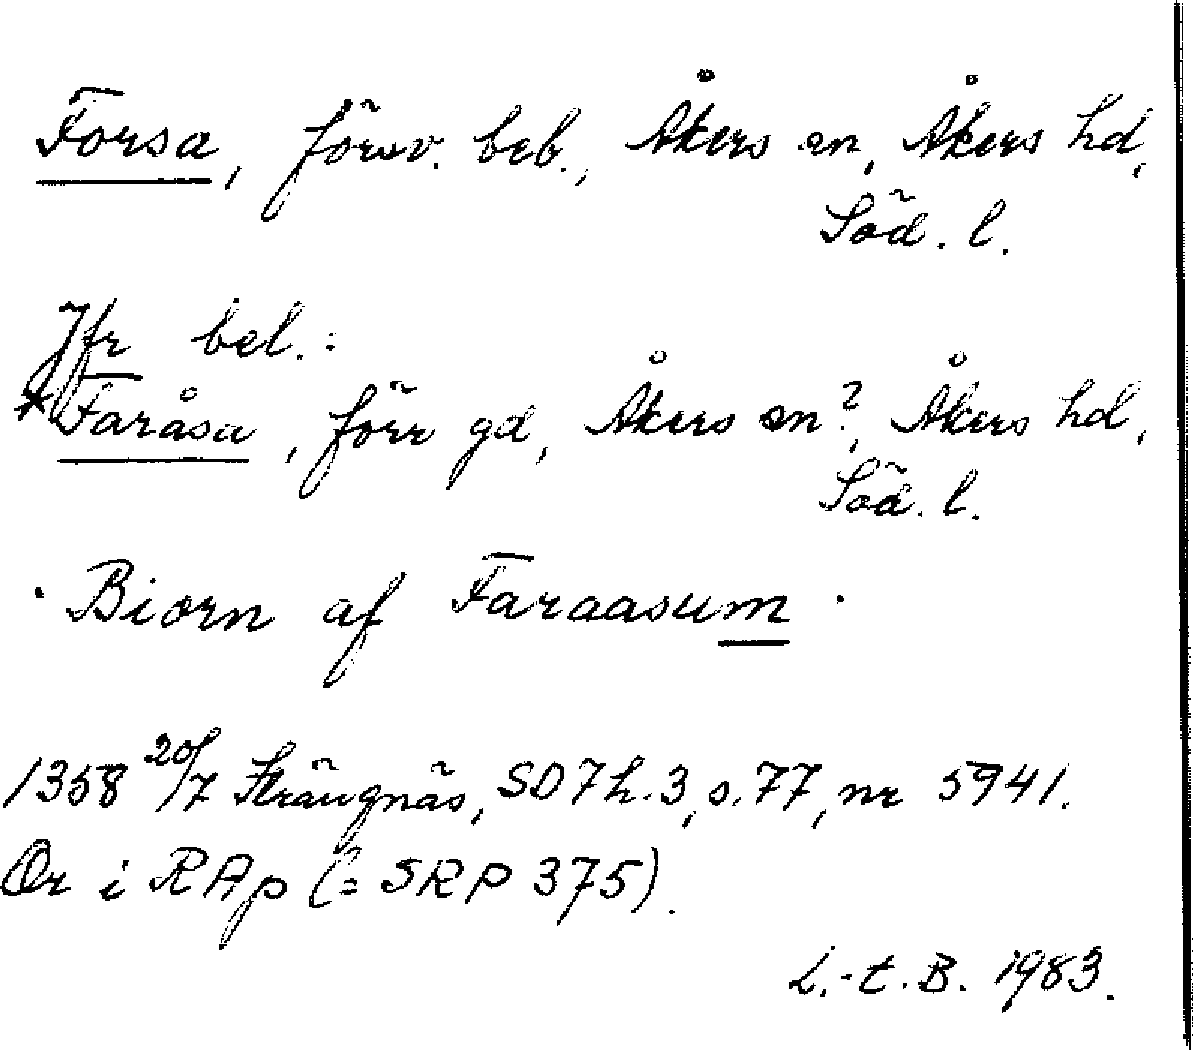 Forsa, försv. beb., Åkers sn, Åkers hd,
Söd. l.
Jfr bel.:
*Faråsa, förr gd, Åkers sn?, Åkers hd,
Söd. l.
· Biorn af Faraasum ·
1358 20/7 Strängnäs, SD 7 h. 3, s. 77, nr 5941.
Or i RAp (= SRP 375).
L.-t. B. 1983.